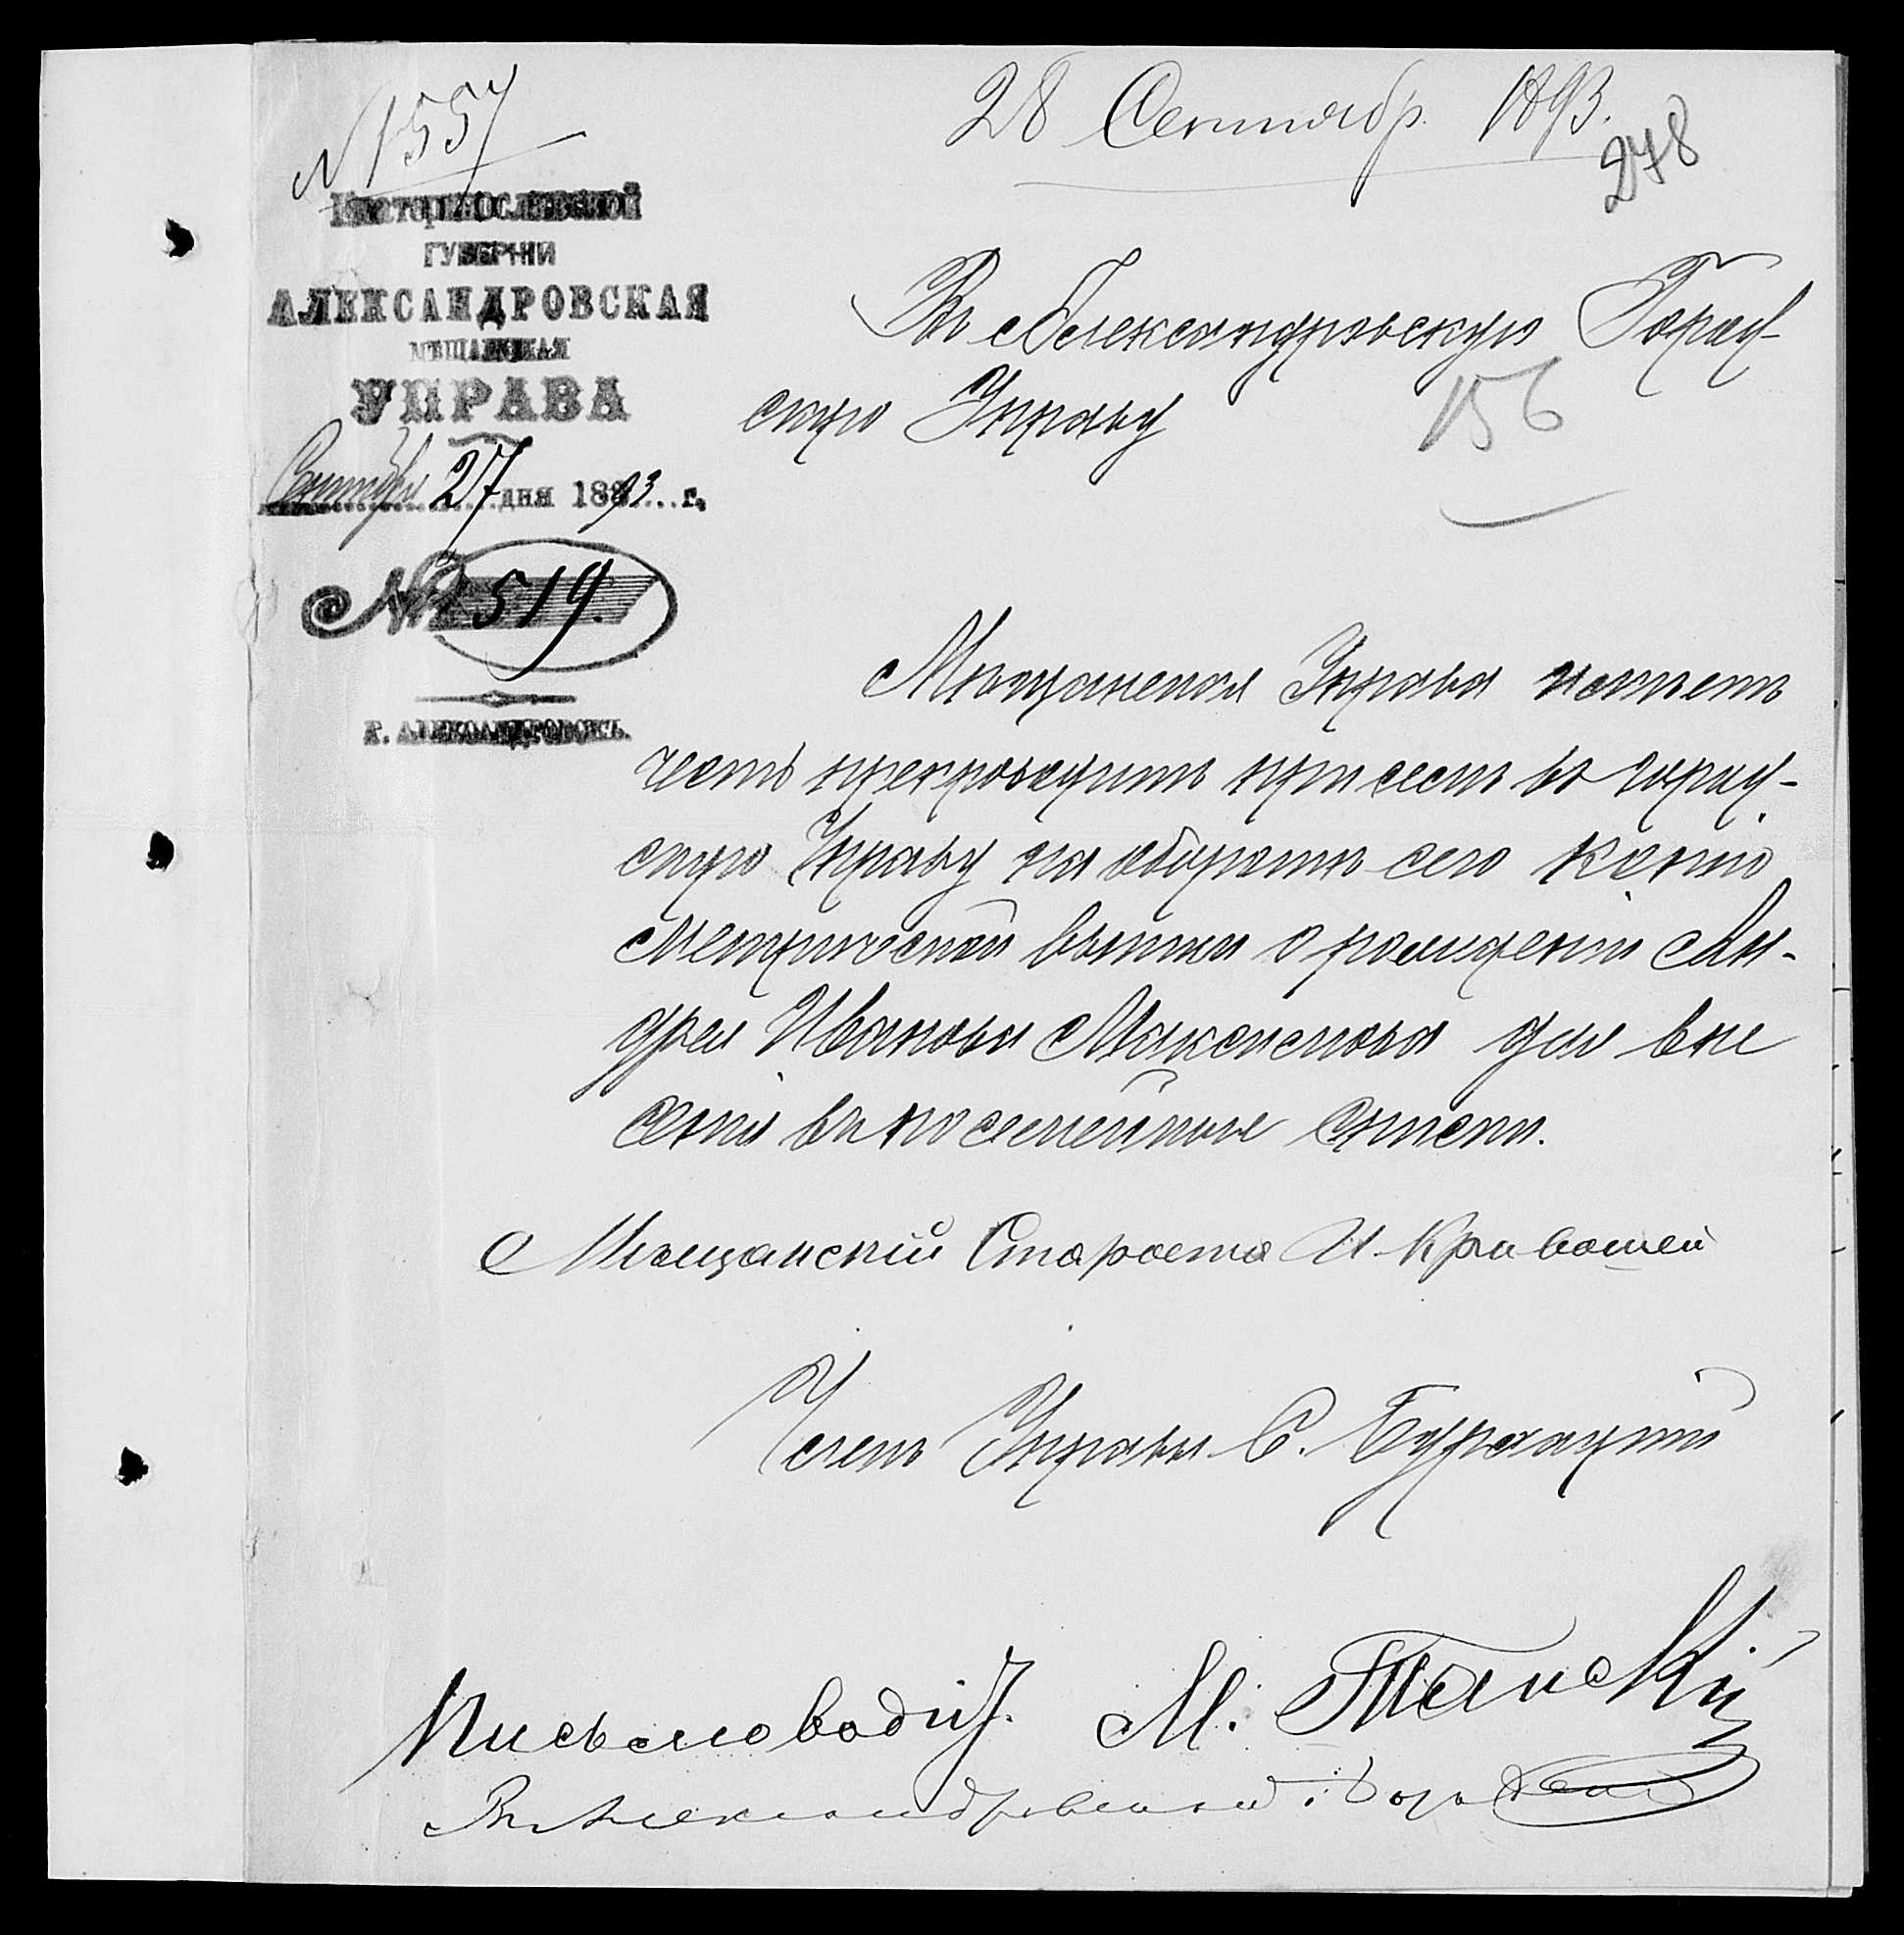 N 1557
28 Сентябр. 1893.
278
Екатеринославской
ГУБЕРНИ
АЛЕКСАНДРОВСКАЯ
МѢЩАНСКАЯ
УПРАВА
Сентября 27 дня 1893 г.
№ 519.
Г. АЛЕКСАНДРОВСКЪ.
Въ Александровскую Город-
скую Управу
156
Мѣщанская Управа имѣетъ
честь препроводить при семъ въ город-
скую Управу на оборотѣ сего копію
Метрической выписи о рожденіи Ан-
дрея Иванова Максимова для вне
сенія въ посемейные списки.
Мѣщанскій Староста И Кривошей
Членъ Управы С.
Письмоводит. М.
Въ Александровской